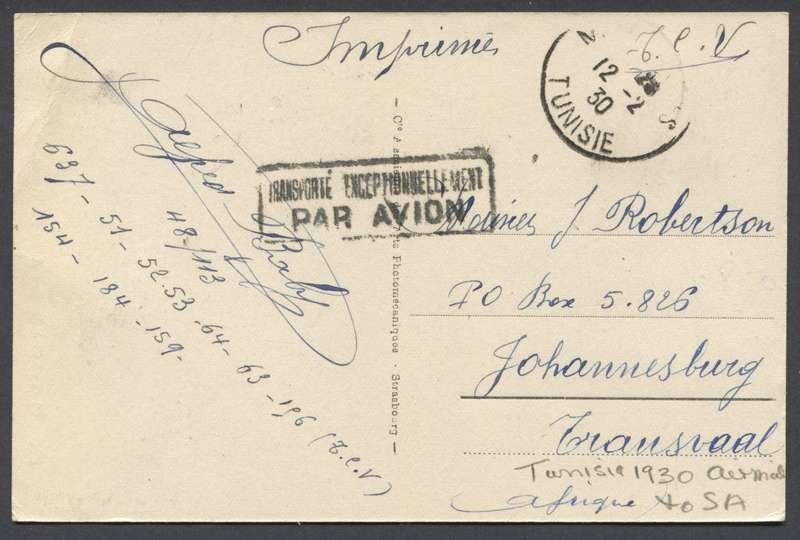 Imprimés
T.C.V
12 -2
30
TUNISIE
TRANSPORTÉ EXCEPTIONNELLEMENT
PAR AVION
Alfred
48/113
637 - 51 - 52.53 - 64 - 63 - 196 (T.C.V)
154 - 184 - 159 -
Cie
Photomécaniques - Strasbourg
J Robertson
PO Box 5.826
Johannesburg
Transvaal
Afrique
Tunisie 1930 airmail
to SA